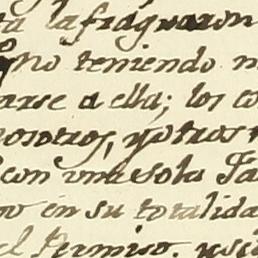 ta la fraguaron
no teniendo
arse a ella; los co
osotros, y otros
con una sola Ta
o en su totalida
el Permiso. y si